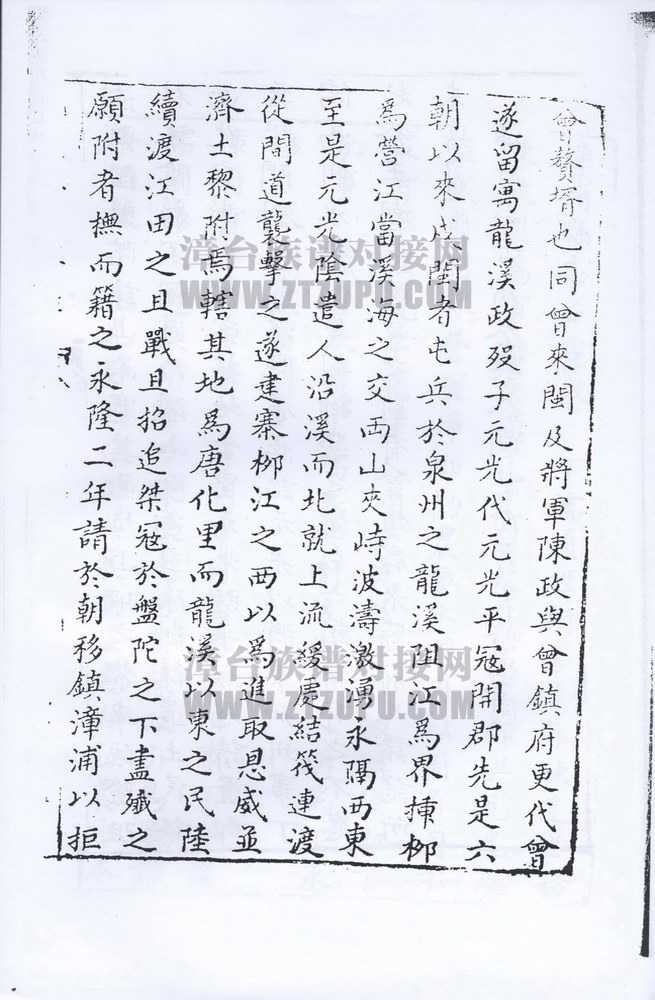 曾贅壻也同曾來閩及將軍陳政與曾鎮府更代曾
遂留寓龍溪政歿子元光代元光平冦開郡先是六
朝以來戍閩者屯兵於泉州之龍溪阻江爲界揷柳
爲營江當溪海之交両山夾峙波濤激湧永隔西東
至是元光陰遣人沿溪而北就上流緩處結筏連渡
從間道襲擊之遂建寨柳江之西以爲進取恩威並
濟土黎附焉轄其地爲唐化里而龍溪以東之民陸
續渡江田之且戰且招追桀冦於盤陀之下盡殲之
願附者撫而籍之永隆二年請於朝移鎮漳浦以拒
漳台族谱对接网
WWW.ZTZUPU.COM
漳台族谱对接网
WWW.ZTZUPU.COM